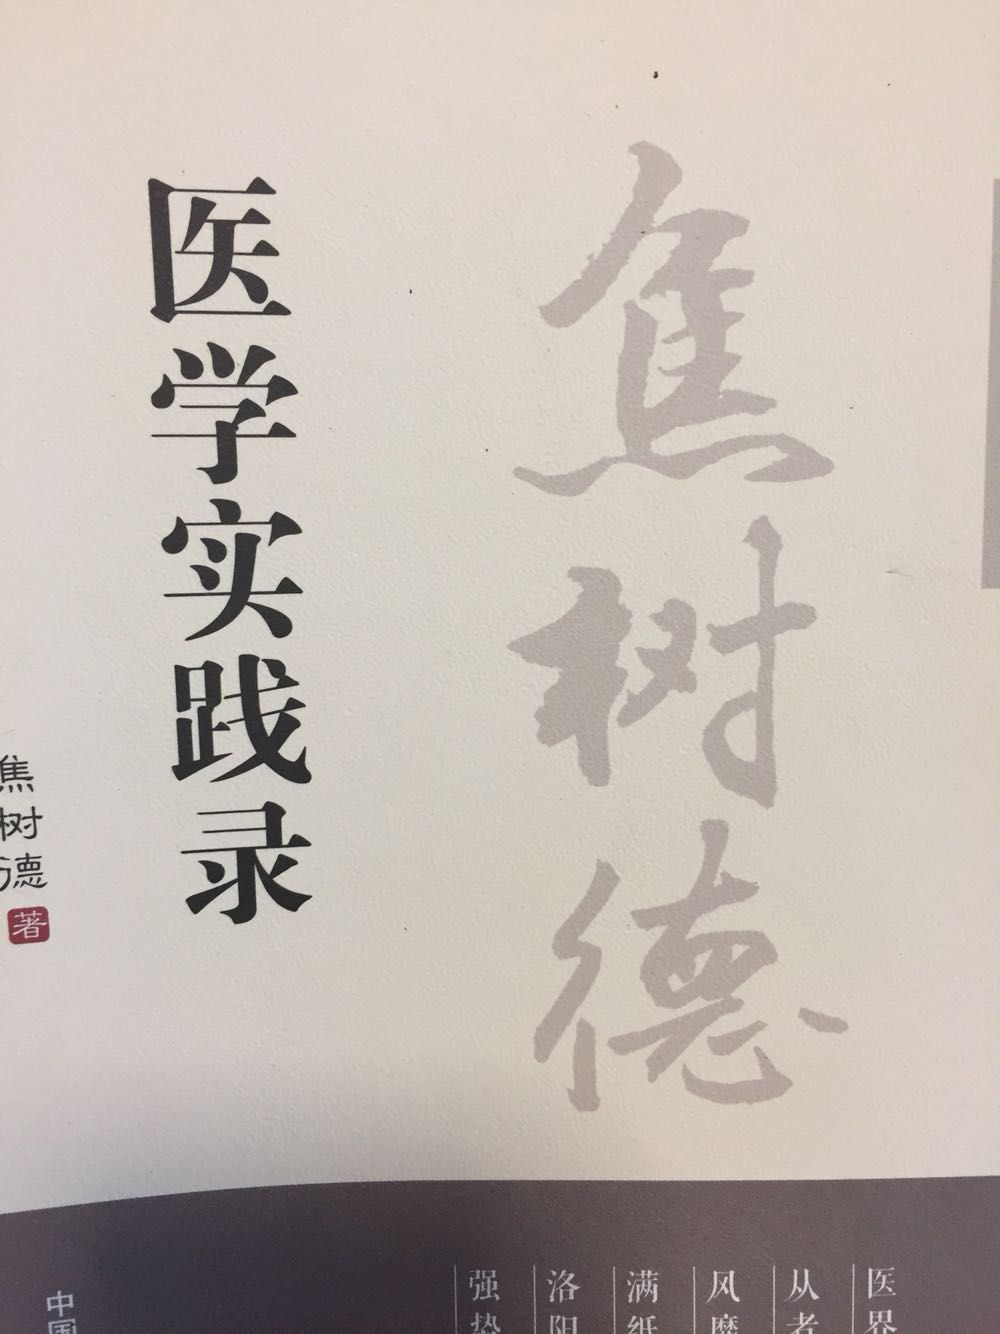 焦树德
医学实践录
焦树德 著
医界
从者
风靡
满纸
洛阳
强势
中国